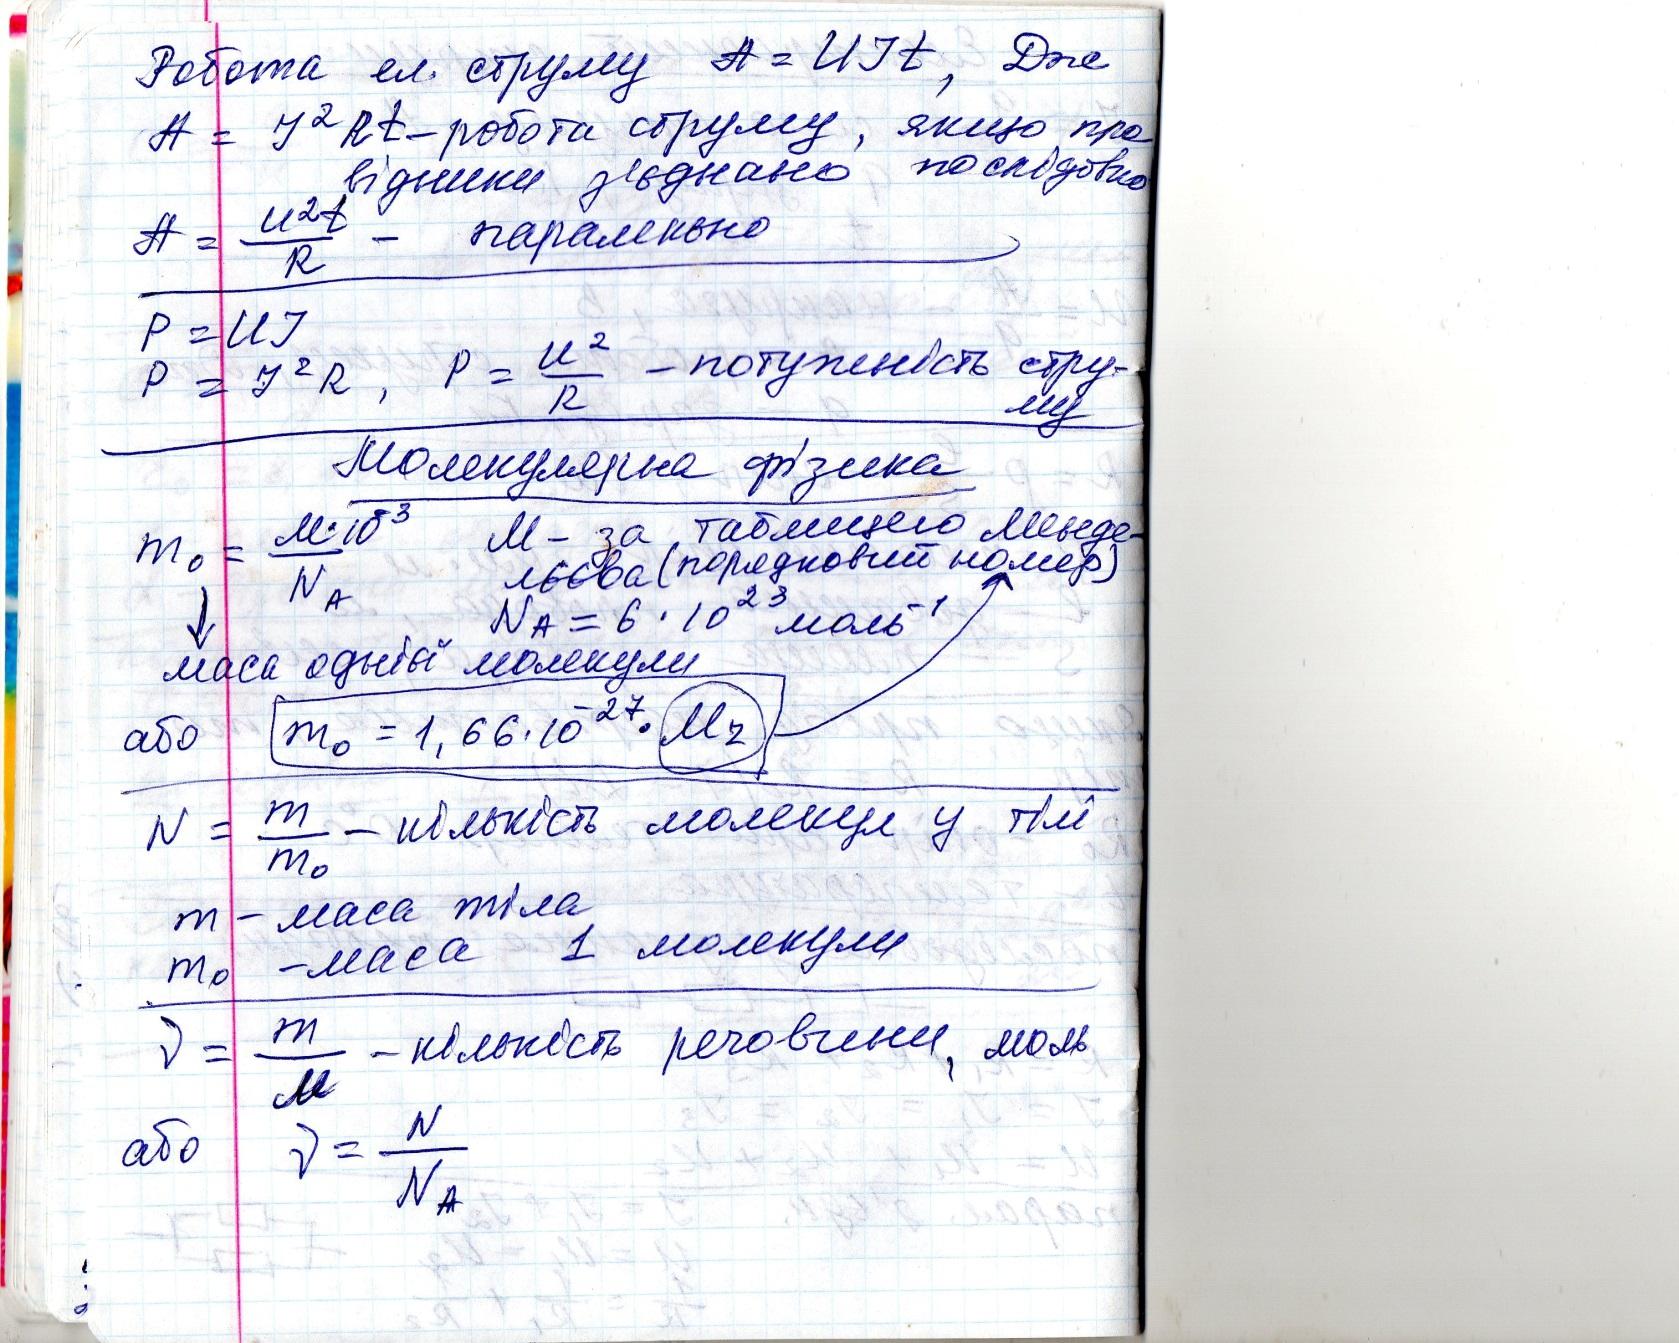 Робота ел. струму A = UIt, Дж
A = I²Rt – робота струму, якщо про
відники з'єднано послідовно
A = U²t/R – паралельно
P = UI
P = I²R, P = U²/R – потужність стру-
му
Молекулярна фізика
m₀ = M·10⁻³/N_A M – за таблицею Менде-
лєєва (порядковий номер)
N_A = 6·10²³ моль⁻¹
маса однієї молекули
або m₀ = 1,66·10⁻²⁷·Mr
N = m/m₀ – кількість молекул у тілі
m – маса тіла
m₀ – маса 1 молекули
ν = m/M – кількість речовини, моль
або ν = N/N_A